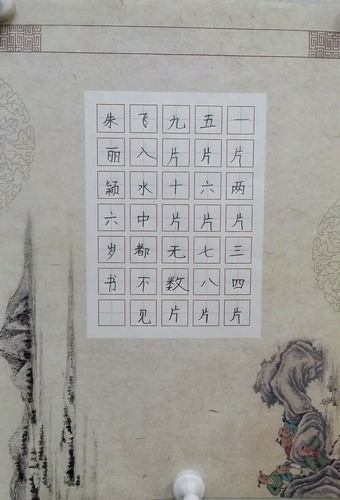 一片两片三四片
五片六片七八片
九片十片无数片
飞入水中都不见
朱丽颖六岁书